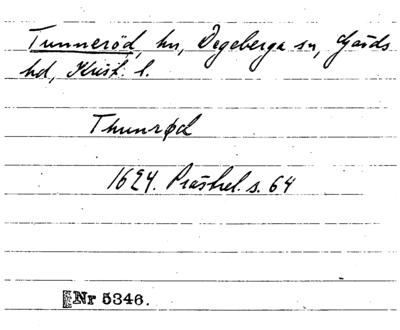 Tunneröd, hn, Degeberga sn, Gärds
hd, Krist. l.
Thunrød
1624. Prästrel. s. 64
Nr 5346.